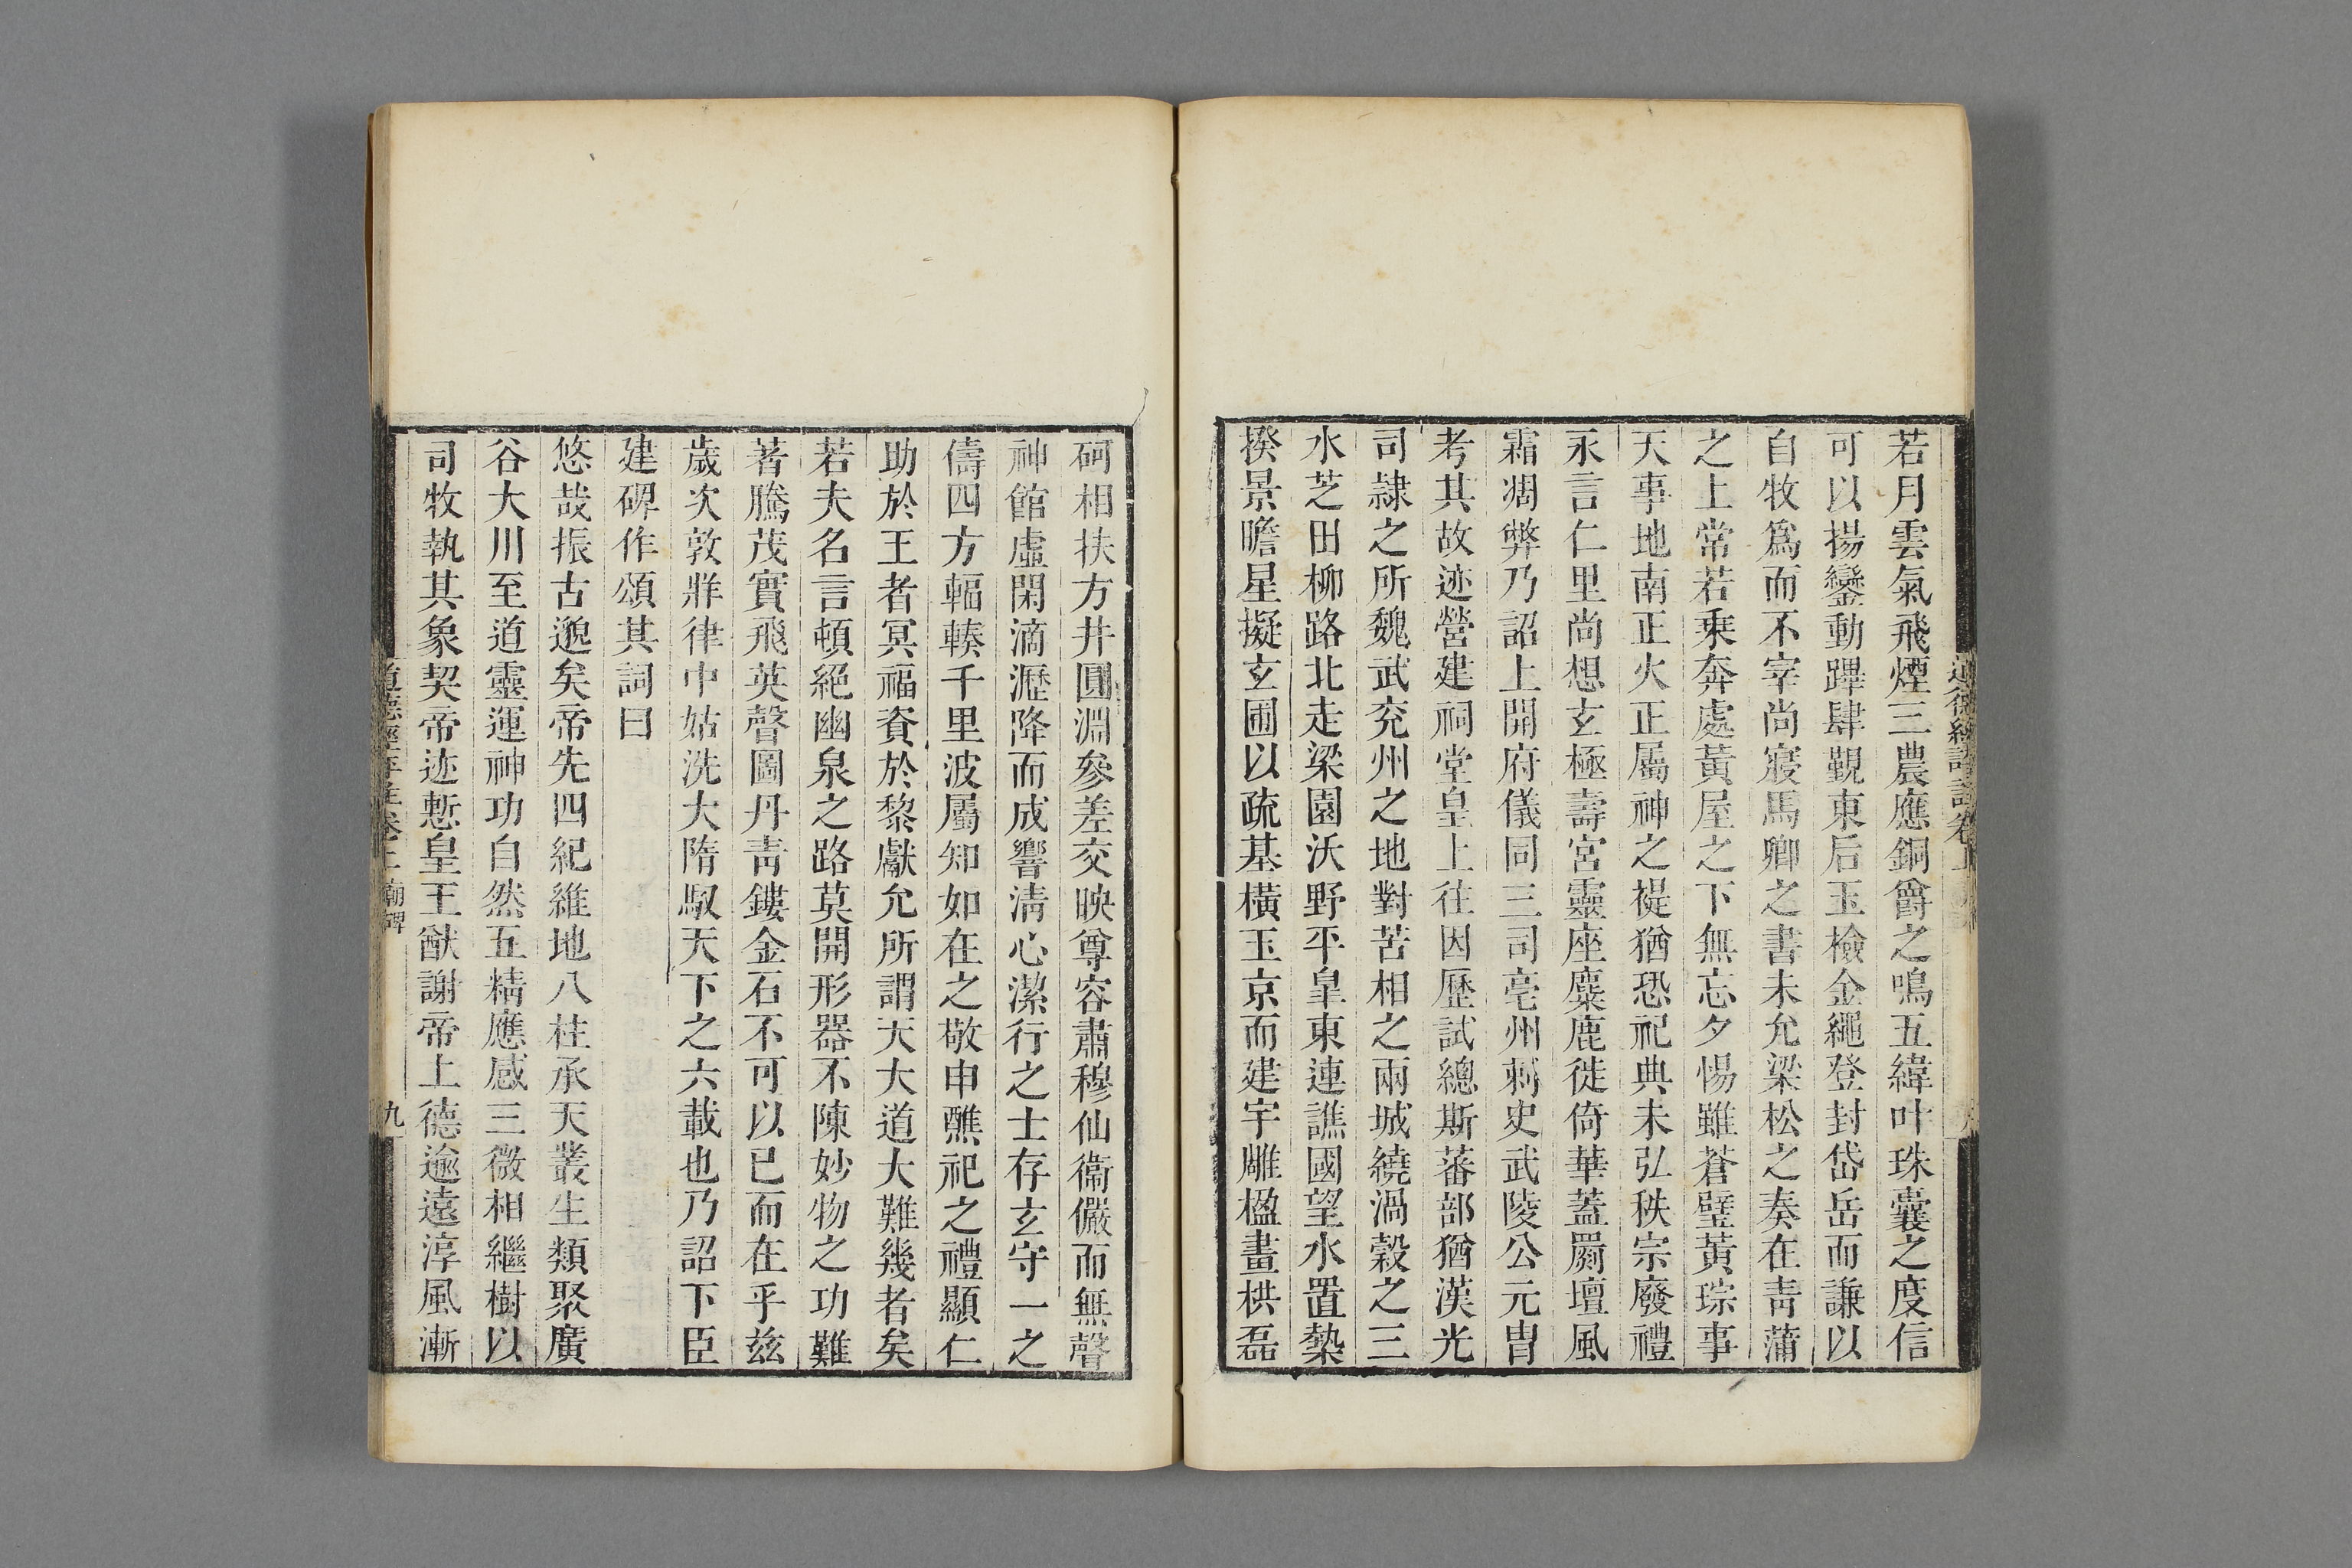 若月雲氣飛煙三農應銅爵之鳴五緯叶珠囊之度信
可以揚鑾動蹕肆覲東后玉檢金繩登封岱岳而謙以
自牧爲而不宰尚寢馬卿之書未允梁松之奏在青蒲
之上常若乘奔處黃屋之下無忘夕惕雖蒼璧黃琮事
天事地南正火正屬神之禔猶恐祀典未弘秩宗廢禮
永言仁里尚想玄極壽宮靈座麋鹿徙倚華蓋罽壇風
霜凋弊乃詔上開府儀同三司亳州刺史武陵公元冑
考其故迹營建祠堂皇上往因歷試總斯蕃部猶漢光
司隸之所魏武兖州之地對苦相之兩城繞渦穀之三
水芝田柳路北走梁園沃野平皐東連譙國望水置槷
揆景瞻星擬玄圃以疏基橫玉京而建宇雕楹畫栱磊
砢相扶方井圓淵參差交映尊容肅穆仙衞儼而無聲
神館虛閑滴瀝降而成響淸心潔行之士存玄守一之
儔四方輻輳千里波屬知如在之敬申醮祀之禮顯仁
助於王者冥福資於黎獻允所謂天大道大難幾者矣
若夫名言頓絕幽泉之路莫開形器不陳妙物之功難
著騰茂實飛英聲圖丹靑鏤金石不可以已而在乎兹
歲次敦牂律中姑洗大隋馭天下之六載也乃詔下臣
建碑作頌其詞曰
悠哉振古邈矣帝先四紀維地八柱承天叢生類聚廣
谷大川至道靈運神功自然五精應感三微相繼樹以
司牧執其象契帝迹慙皇王猷謝帝上德逾遠淳風漸
道德經評註卷上 廟碑 九